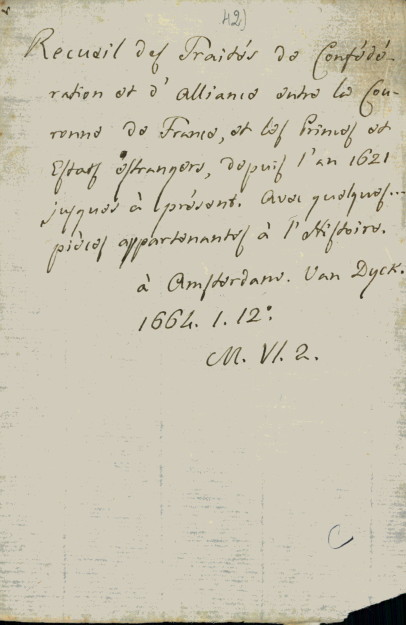 42)
Recueil des Traités de Confédé-
ration et d'Alliance entre la Cou-
ronne de France, et les Princes et
Estats éstrangers, depuis l'an 1621
jusques à présent. Avec quelques
pièces appartenantes à l'Histoire.
à Amsterdam. Van Dyck.
1664. 1. 12°.
M. VI. 2.